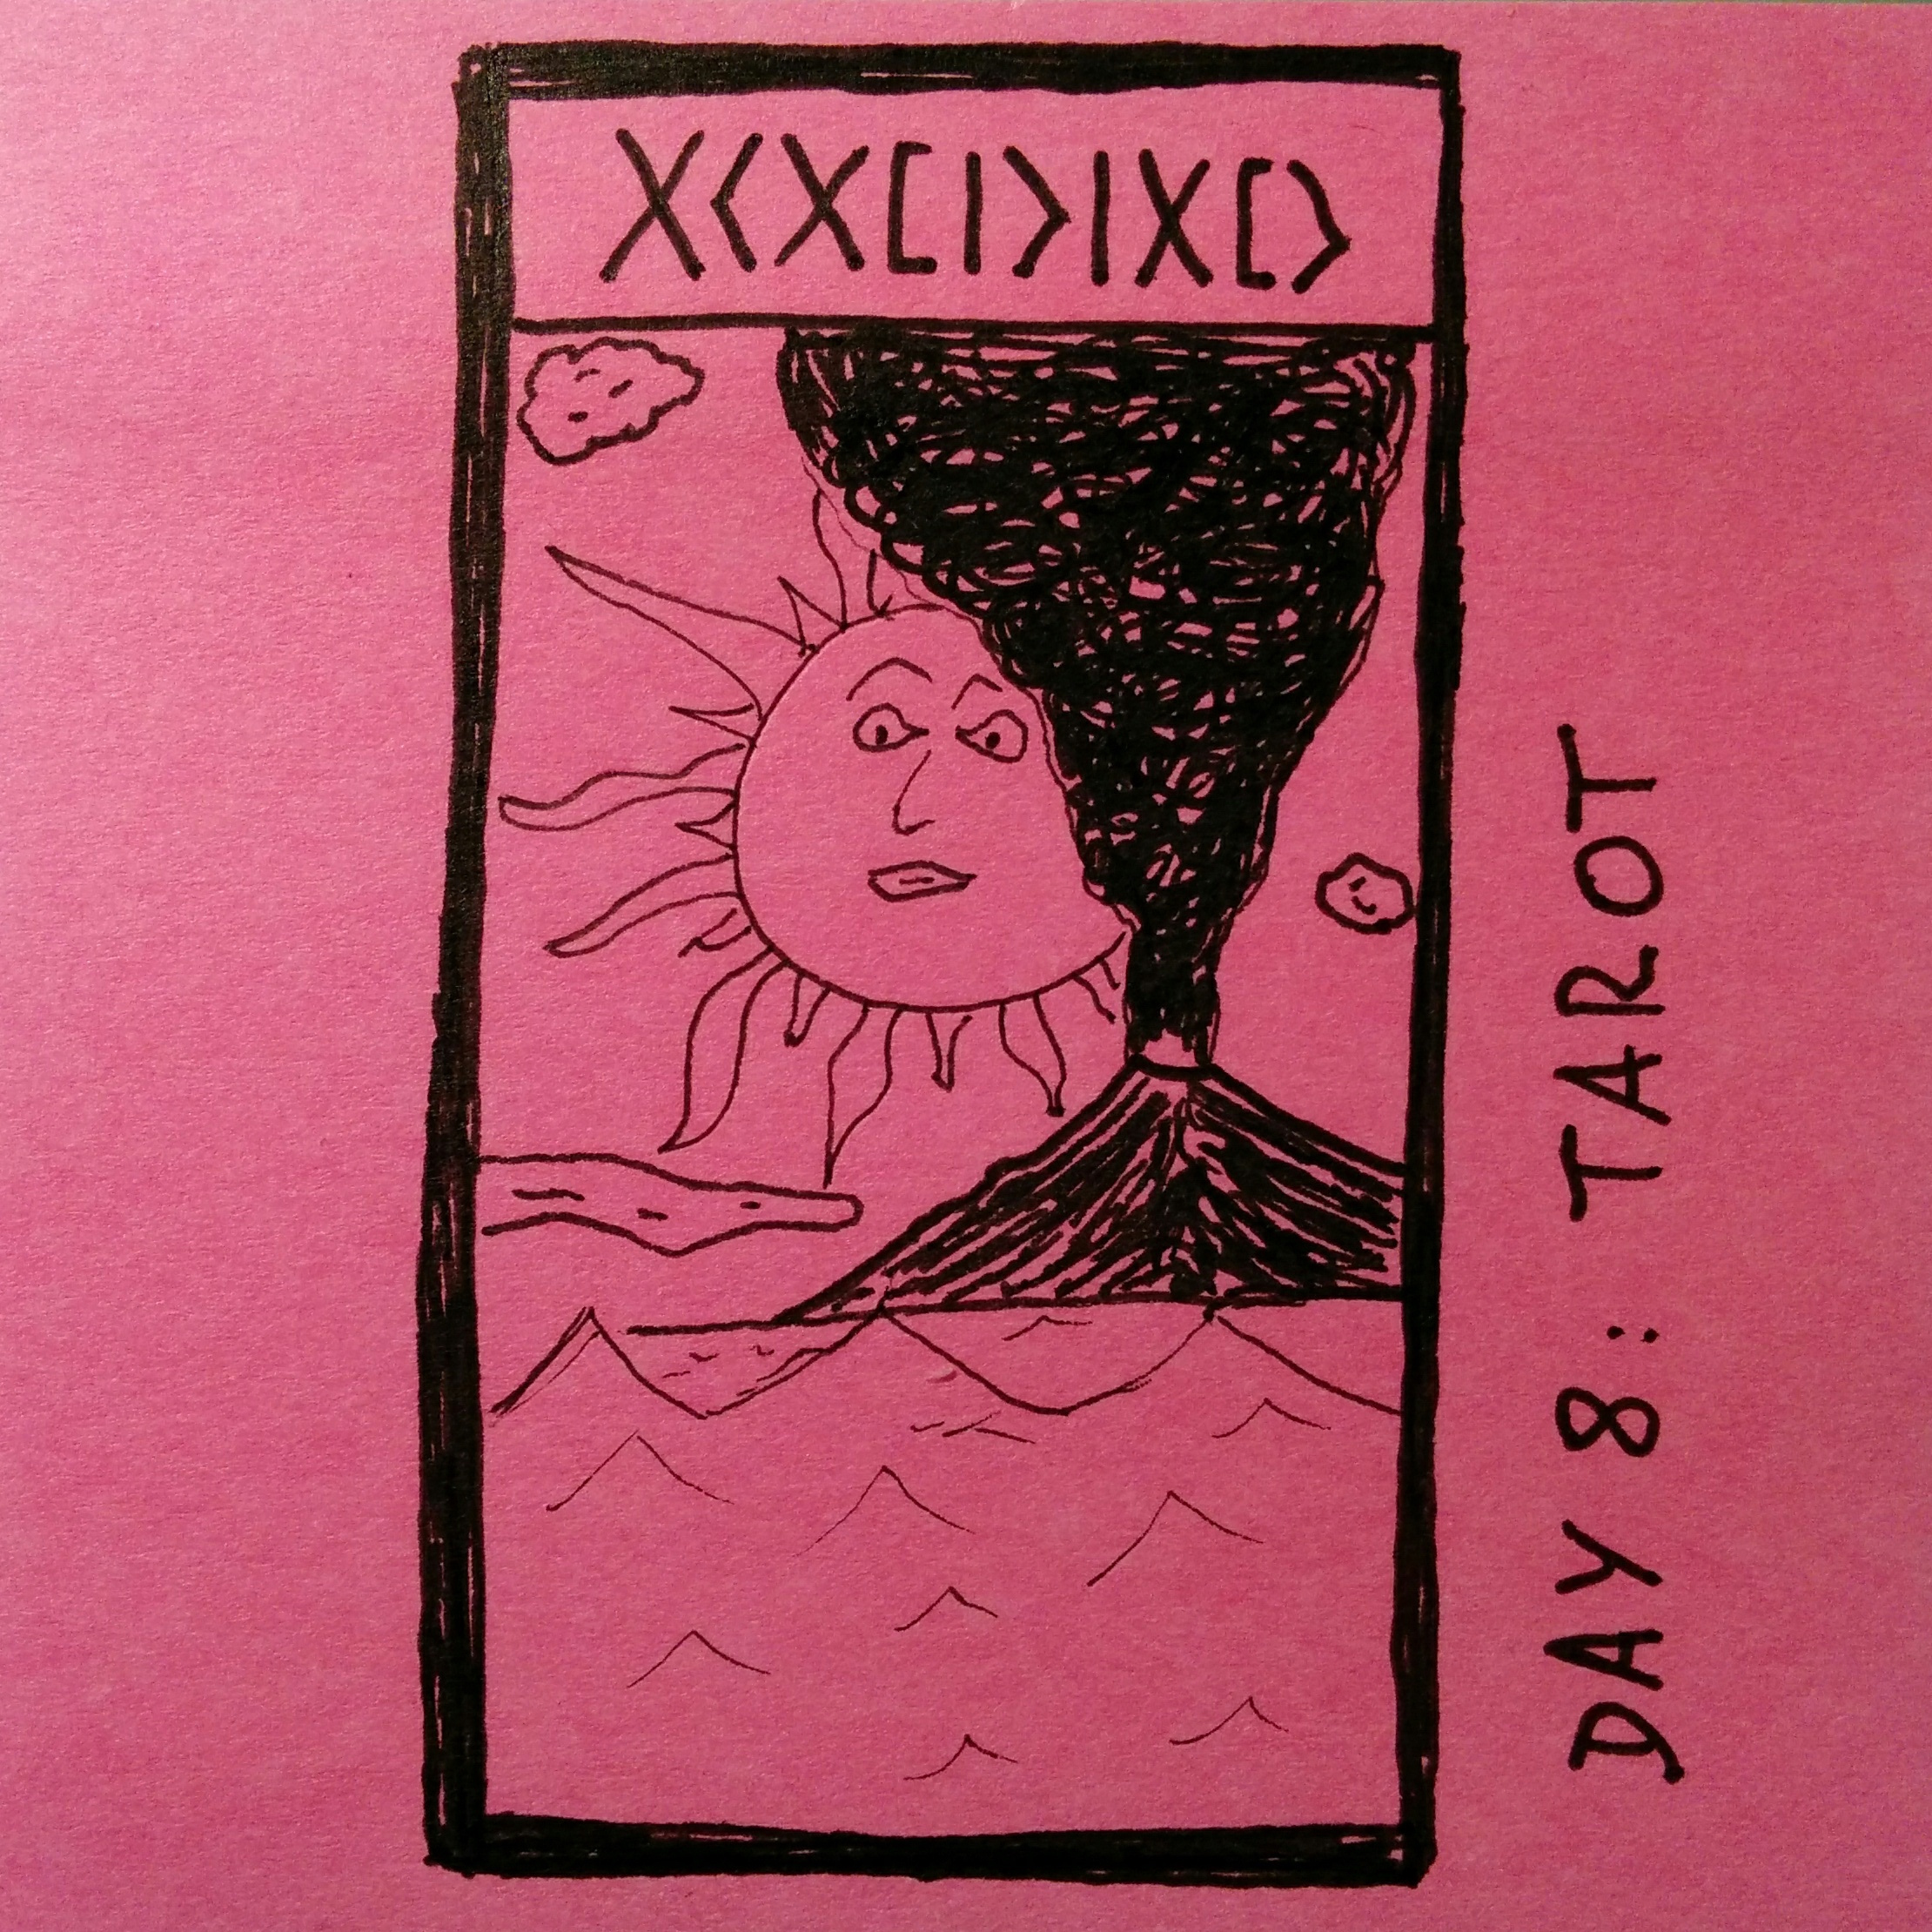 X<X[I>IX[>
DAY 8: TAROT